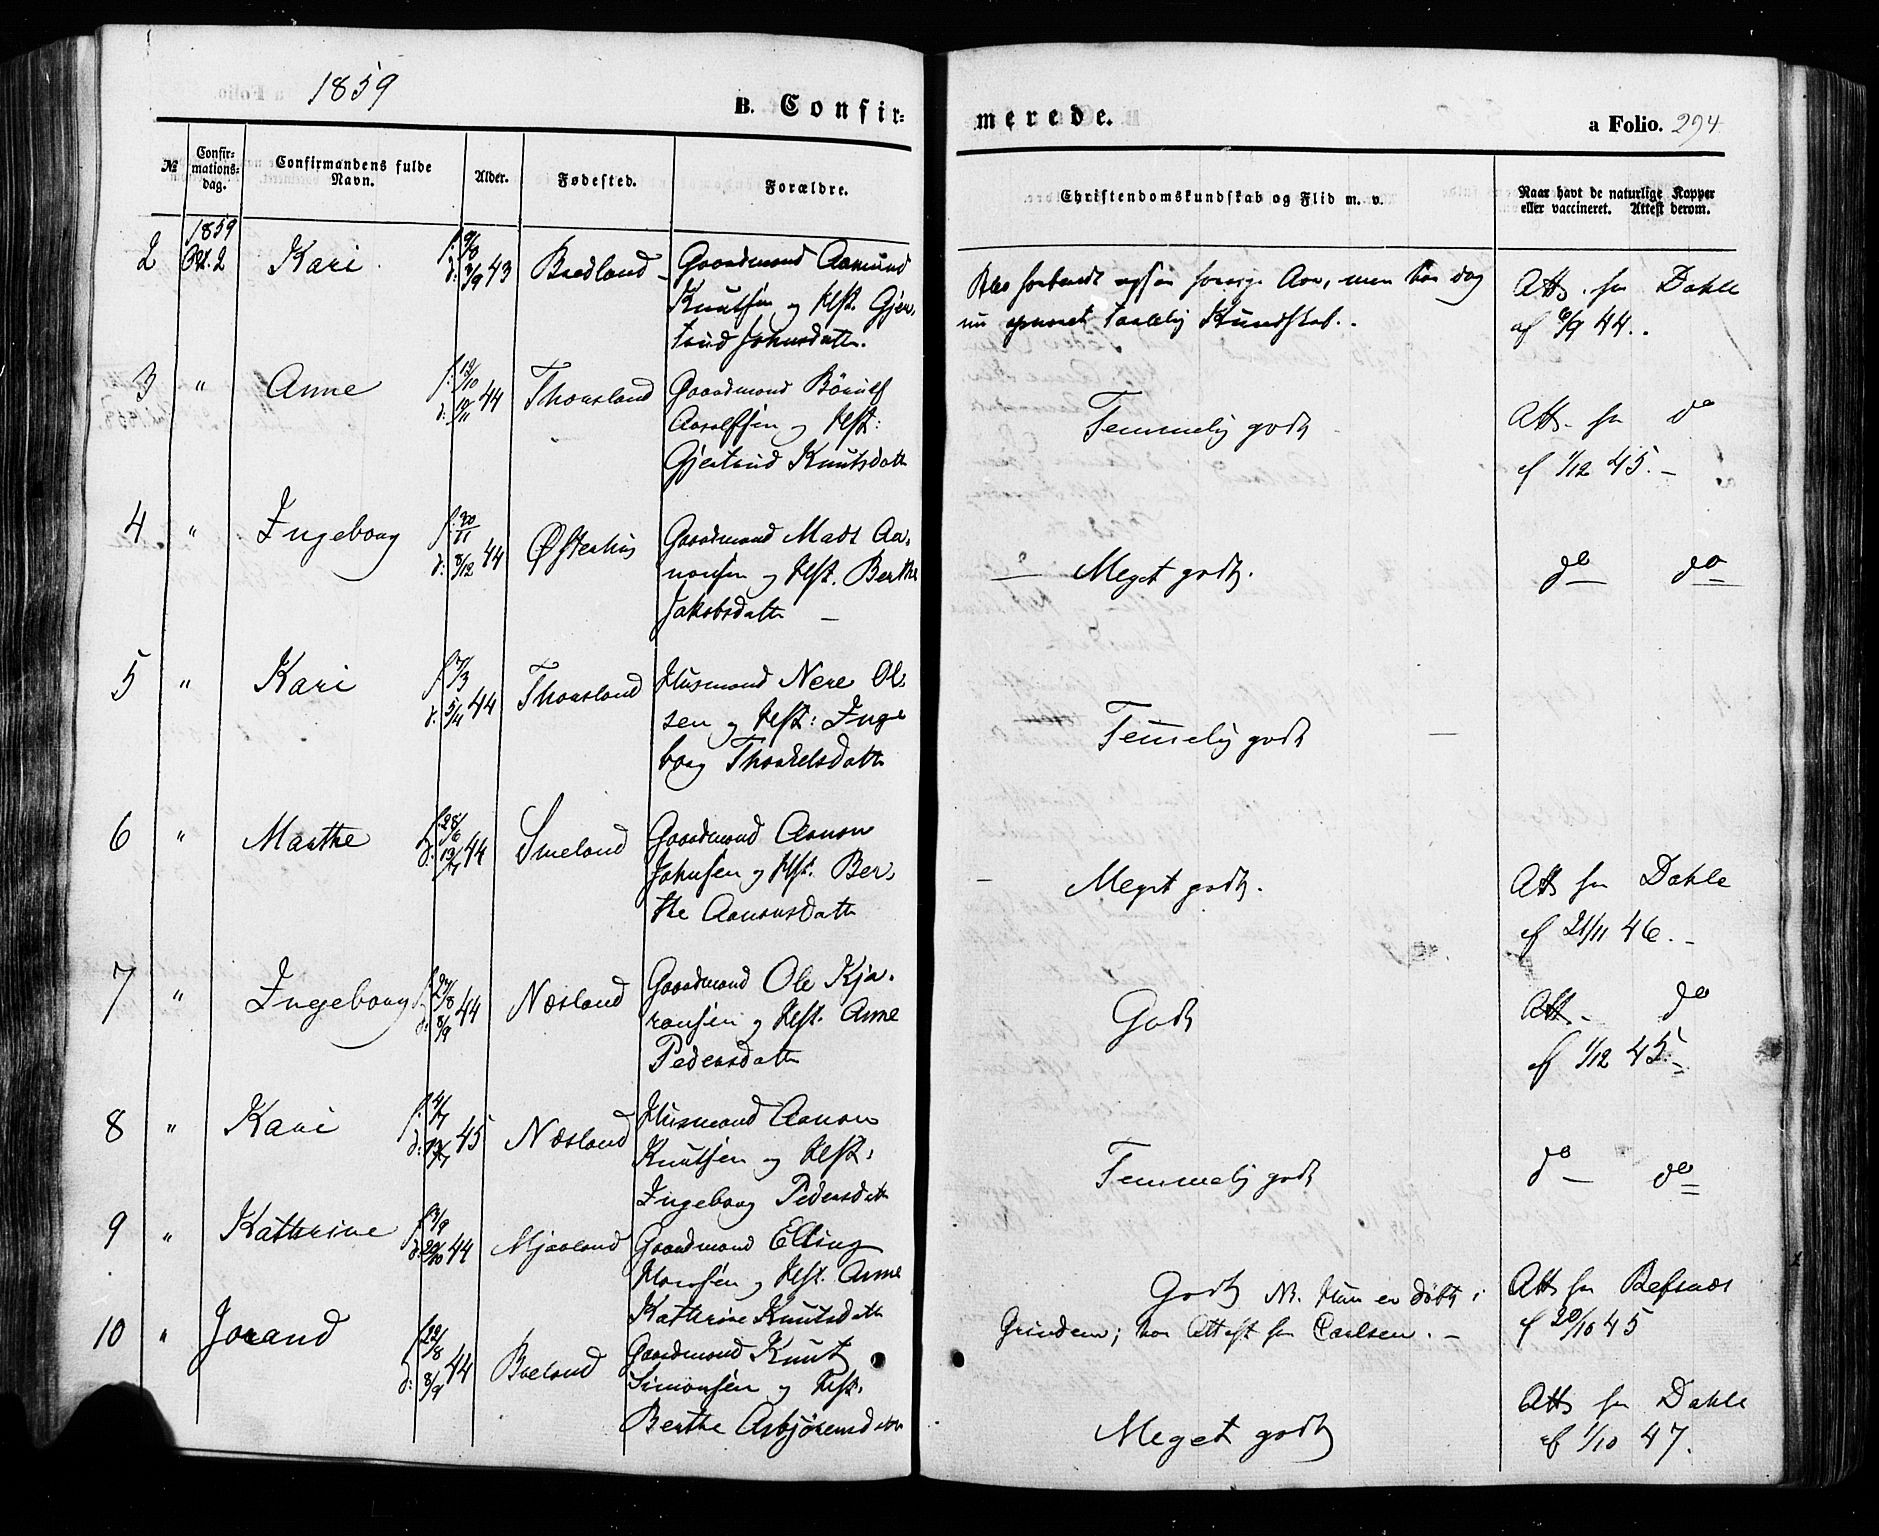 1859
B. Confir=
merede.
a Folio. 294
№
Confir=
mations=
dag.
Confirmandens fulde
Navn.
Alder.
Fødested.
Forældre.
Christendomskundskab og Flid m. v.
Naar havt de naturlige Kopper
eller vaccineret. Attest derom.
1859
2 Oct. 2 Kari 43
Gaardmand Aamund
Knutsen og Hst. Gjer-
trud Johnsdatter.
men har dog
nu opnaaet taalelig Kundskab.
Att. fra Dahle
af 6/9 44.
3 " Anne f: 13/10 d: 10/11 44 Thorsland
Gaardmand
og Hst:
Gjertrud Knutsdatter
Temmelig godt
Att. fra do
af 1/12 45.
4 " Ingeborg f: 20/11 d: 8/12 44 Østerhus
Gaardmand Mads Aa-
nonsen og Hst. Berthe
Jakobsdatter
Meget godt.
do do
5 " Kari f: 7/3 d: 5/4 44 Thorsland
Husmand Nere Ol-
sen og Hst: Inge
borg Thorkelsdatter
Temmelig godt
6 " Marthe f: 28/6 d: 13/7 44 Smeland
Gaardmand Aanon
Johnsen og Hst. Ber-
the Aanonsdatter
Meget godt.
Att fra Dahle
af 21/11 46.
7 " Ingeborg f: 24/8 d: 8/9 44 Næsland
Gaardmand Ole Kja-
ransen og Hst. Anne
Pedersdatter
Godt
Att. do
af 1/12 45.
8 " Kari f: 4/7 45 Næsland
Husmand Aanon
Knutsen og Hst.
Ingeborg Pedersdatter
Temmelig godt
do do
9 " Kathrine d: 20/10 44 Mjaaland
Gaardmand Elling
Hansen og Hst. Anne
Kathrine Knutsdatter
Godt NB. Hun er døbt i
Grindem; har Attest fra Carlsen.
Att fra Refsnæs
af 20/10 45
10 " Jorand f: 22/8 d: 8/9 44
Gaardmand Knut
Simonsen og Hst.
Berthe Asbjørnsdatter
Meget godt
Att fra Dahle
af 1/10 47.